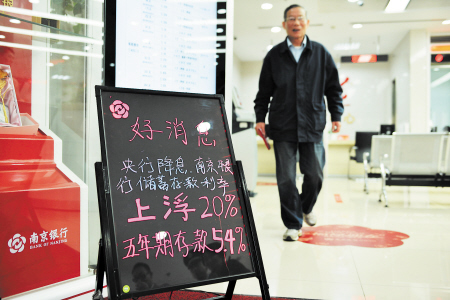 好消息
央行降息、南京银
行储蓄存款利率
上浮20%
五年期存款5.4%
南京银行
BANK OF NANJING